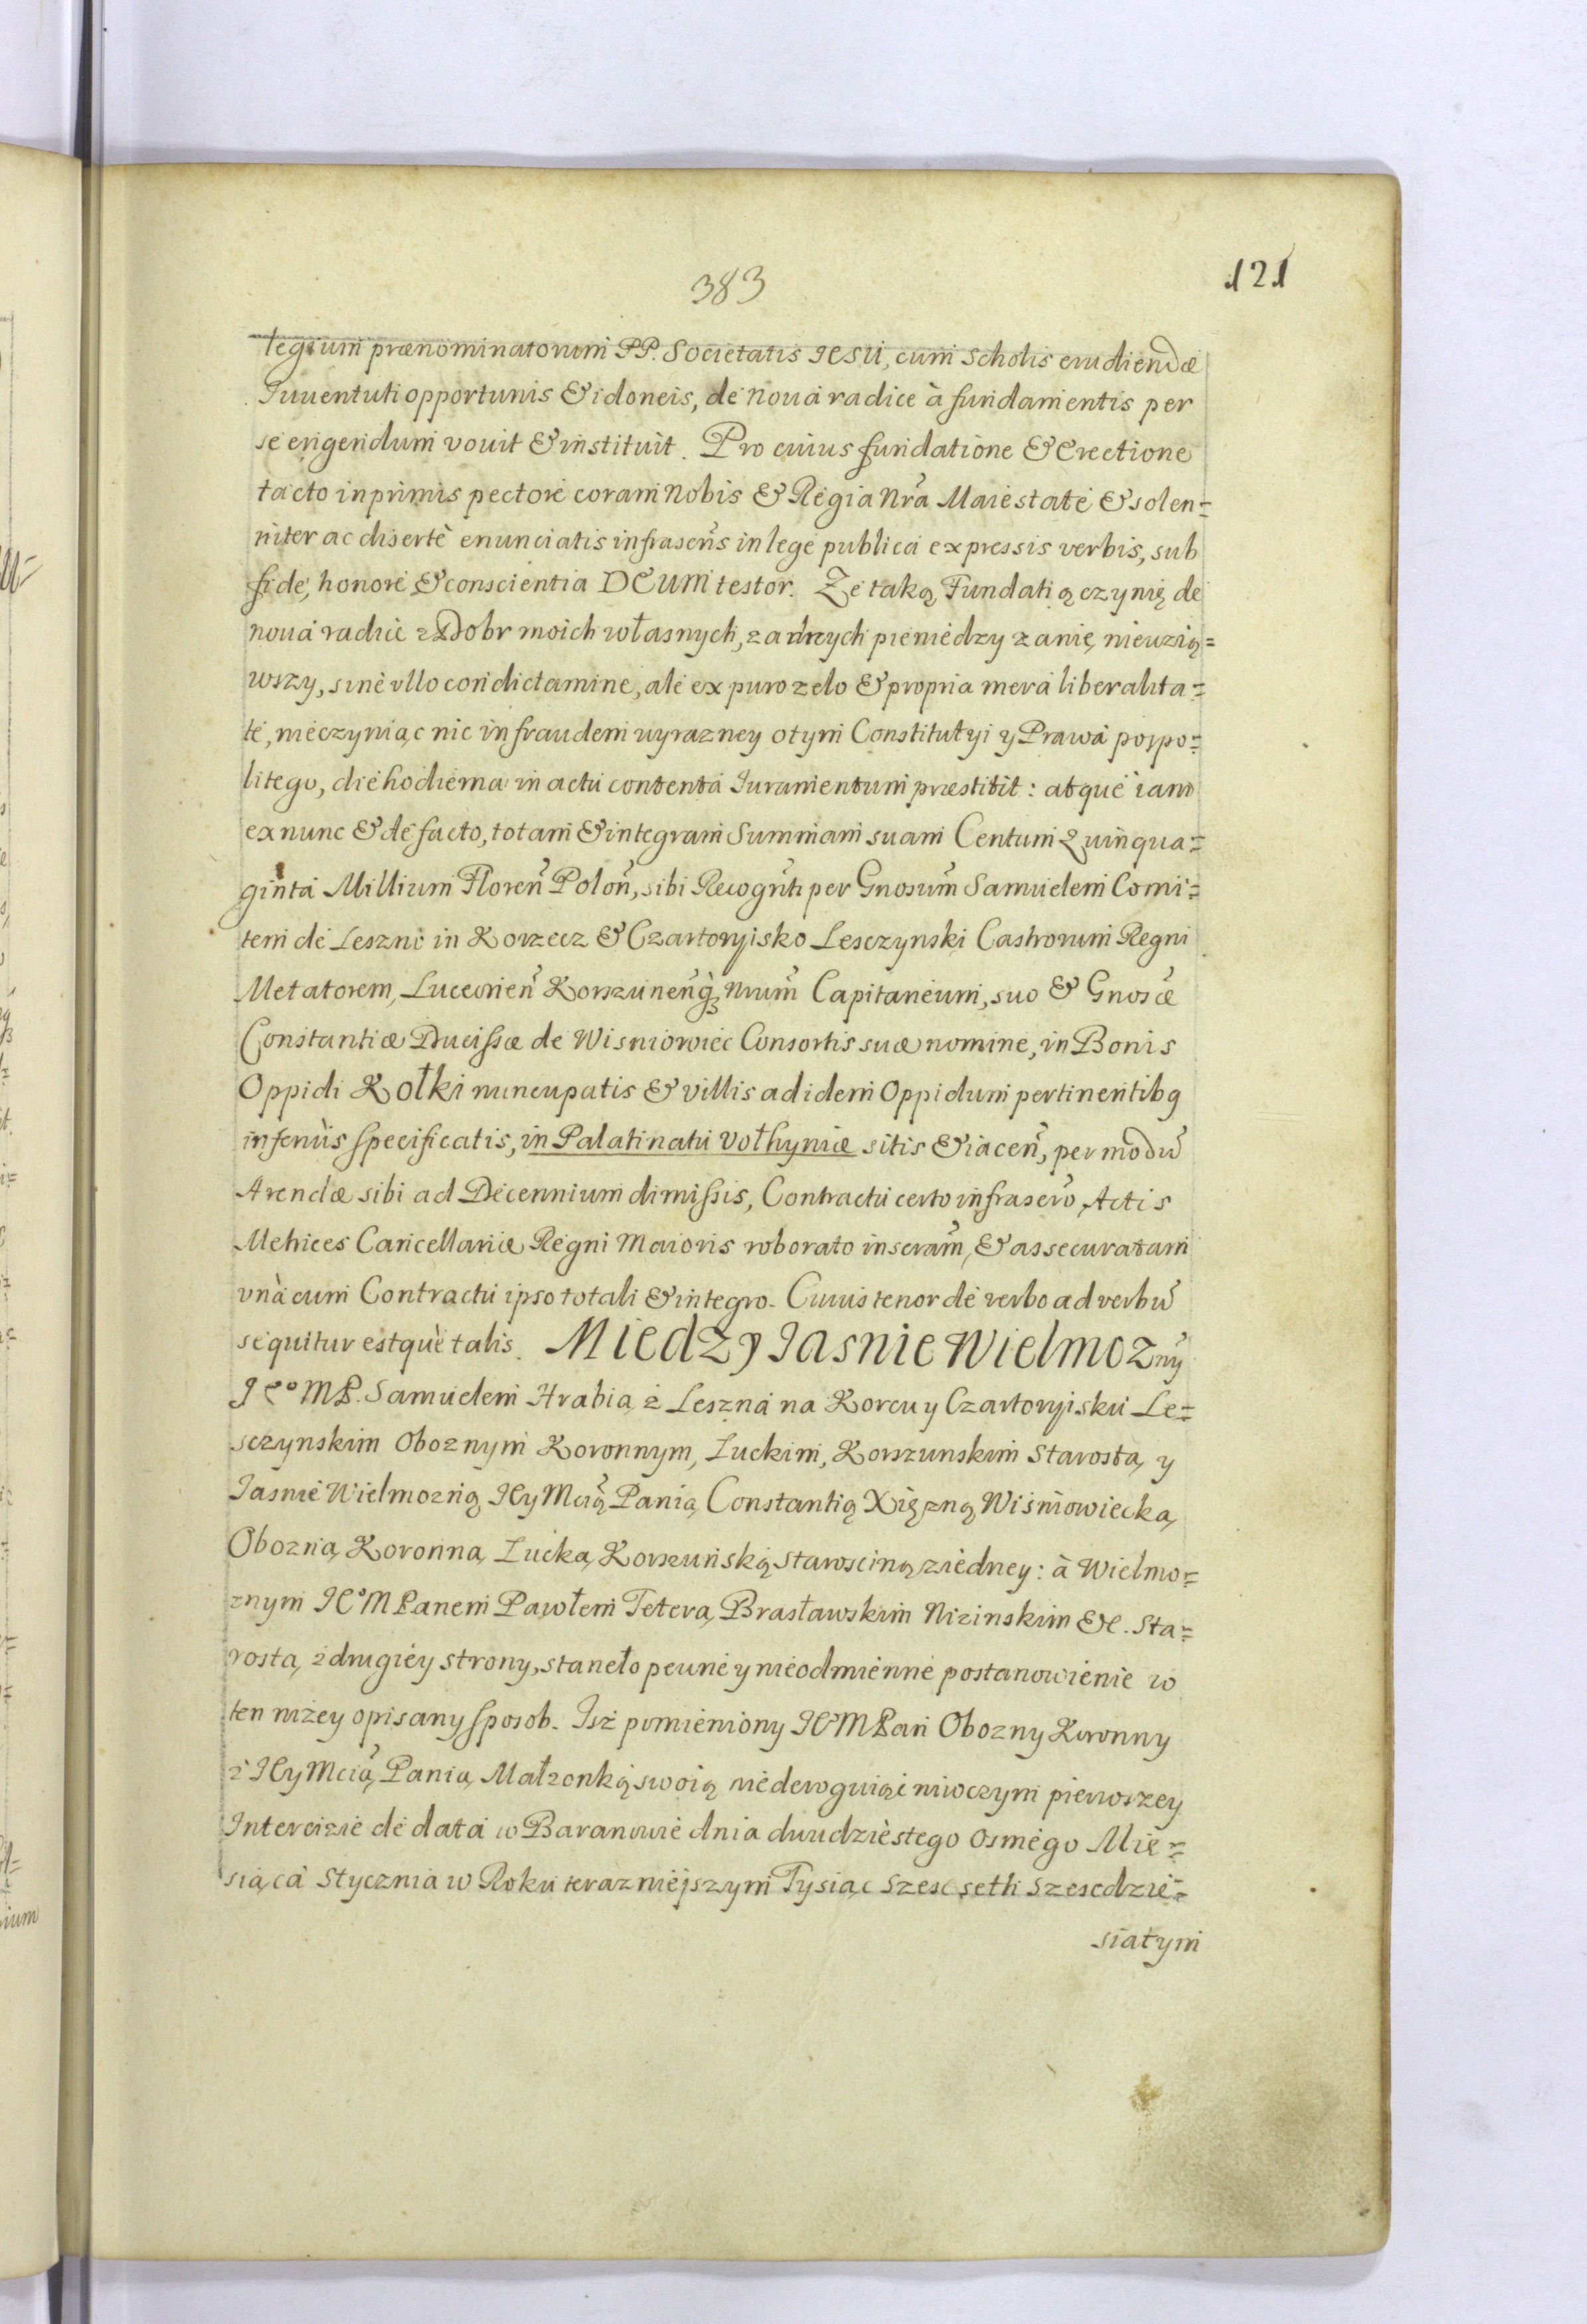 383
121
legium prænominatorum PP. Societatis IESU, cum Scholis erudiendæ
Iuuentuti opportunis & idoneis, de noua radice à fundamentis per
se erigendum vouit & instituit. Pro cuius fundatione & Erectione
tacto inprimis pectore coram Nobis & Regia Nrã Maiestate & solen=
niter ac disertè enunciatis infrascr̃is in lege publica expressis verbis, sub
fide, honore & conscientia DEUM testor. Że taką Fundatią czynię de
noua radice z Dobr moich własnych, żadnych pieniędzy za nię nieuzią=
wszy, sine vllo condictamine, ale ex puro zelo & propria mera liberalita=
te, nieczyniąc nic in fraudem wyrazney o tym Constitutyi y Prawa pospo=
litego, die hodierna in actu contenta Iuramentum præstitit: atque iam
ex nunc & de facto, totam & integram Summam suam Centum Quinqua=
ginta Millium Floreñ Poloñ, sibi Recogñti per Gnosum̃ Samuelem Comi=
tem de Leszno in Korzecz & Czartoryisko Lesczynski Castrorum Regni
Metatorem, Luceorieñ Korszuneñq̃ Nrum̃ Capitaneum, suo & Gnosæ̃
Constantiæ Ducissæ de Wisniowiec Consortis suæ nomine, in Bonis
Oppidi Kołki nuncupatis & villis ad idem Oppidum pertinentibq
inferiùs specificatis, in Palatinatu Vołhyniæ sitis & iaceñ, per modũ
Arendæ sibi ad Decennium dimissis, Contractu certo infrascr̃o, Actis
Metrices Cancellariæ Regni Maioris roborato inscram̃, & assecuratam
vnà cum Contractu ipso totali & integro. Cuius tenor de verbo ad verbũ
sequitur estquè talis. Miedzy Iasnie Wielmoznỹ
IE° MP. Samuelem Hrabią z Leszna na Korcu y Czartoryisku Le=
sczynskim Oboznym Koronnym, Łuckim, Korszunskim Starostą, y
Iasnie Wielmozną IEy Mcią̃ Panią Constantią Xiężną Wisniowiecką,
Obozną Koronną Łucką, Korszuńską Starosciną, ziedney: à Wielmo=
znym IE° M Panem Pawłem Teterą, Brasławskim Nizinskim &c. Sta=
rostą, z drugiey strony, staneło peune y nieodmienne postanowienie w
ten nizey opisany sposob. Isz pomieniony IE° M Pan Obozny Koronny
z IEy Mcią̃ Panią Małzonką swoią niederoguiąc niwczym pierwszey
Intercizie de data w Baranowie dnia dwudziestego Osmego Mie=
siąca Stycznia w Roku teraznieyszym Tysiąc Szesc seth Szescdzie=
siatym